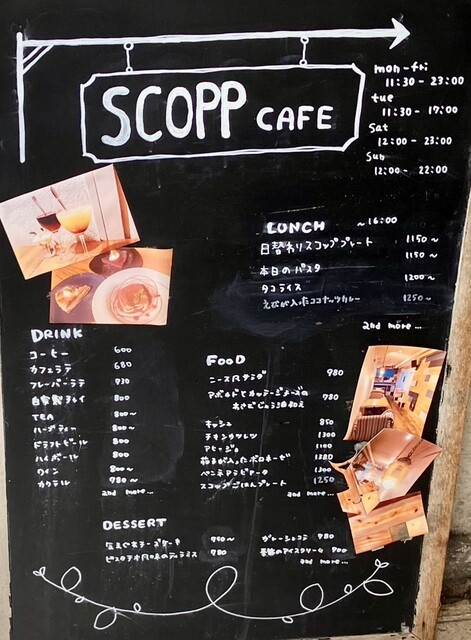 SCOPP CAFE
mon-fri
11:30 - 23:00
tue
11:30 - 17:00
Sat
12:00 - 23:00
Sun
12:00 - 22:00
LUNCH ~16:00
日替わりスコッププレート 1150~
本日のパスタ 1150~
タコライス 1200~
えびが入ったココナッツカレー 1250~
and more...
DRINK
コーヒー 600
カフェラテ 680
フレーバーラテ 930
自家製チャイ 800
TEA 800~
ハーブティー 800~
ドラフトビール 800
ハイボール 800
ワイン 800~
カクテル 780~
and more...
FOOD
ニース風サラダ 980
アボカドとカッテージチーズの
わさびじょうゆ和え 980
キッシュ 850
チキンカツレツ 1300
アヒージョ 1100
茄子が入ったボロネーゼ 1380
ペンネアラビアータ 1300
スコップごはんプレート 1250
and more...
DESSERT
チーズケーキ
ピスタチオ風味のティラミス 780
ガトーショコラ 980
のアイスクリーム 800
and more...